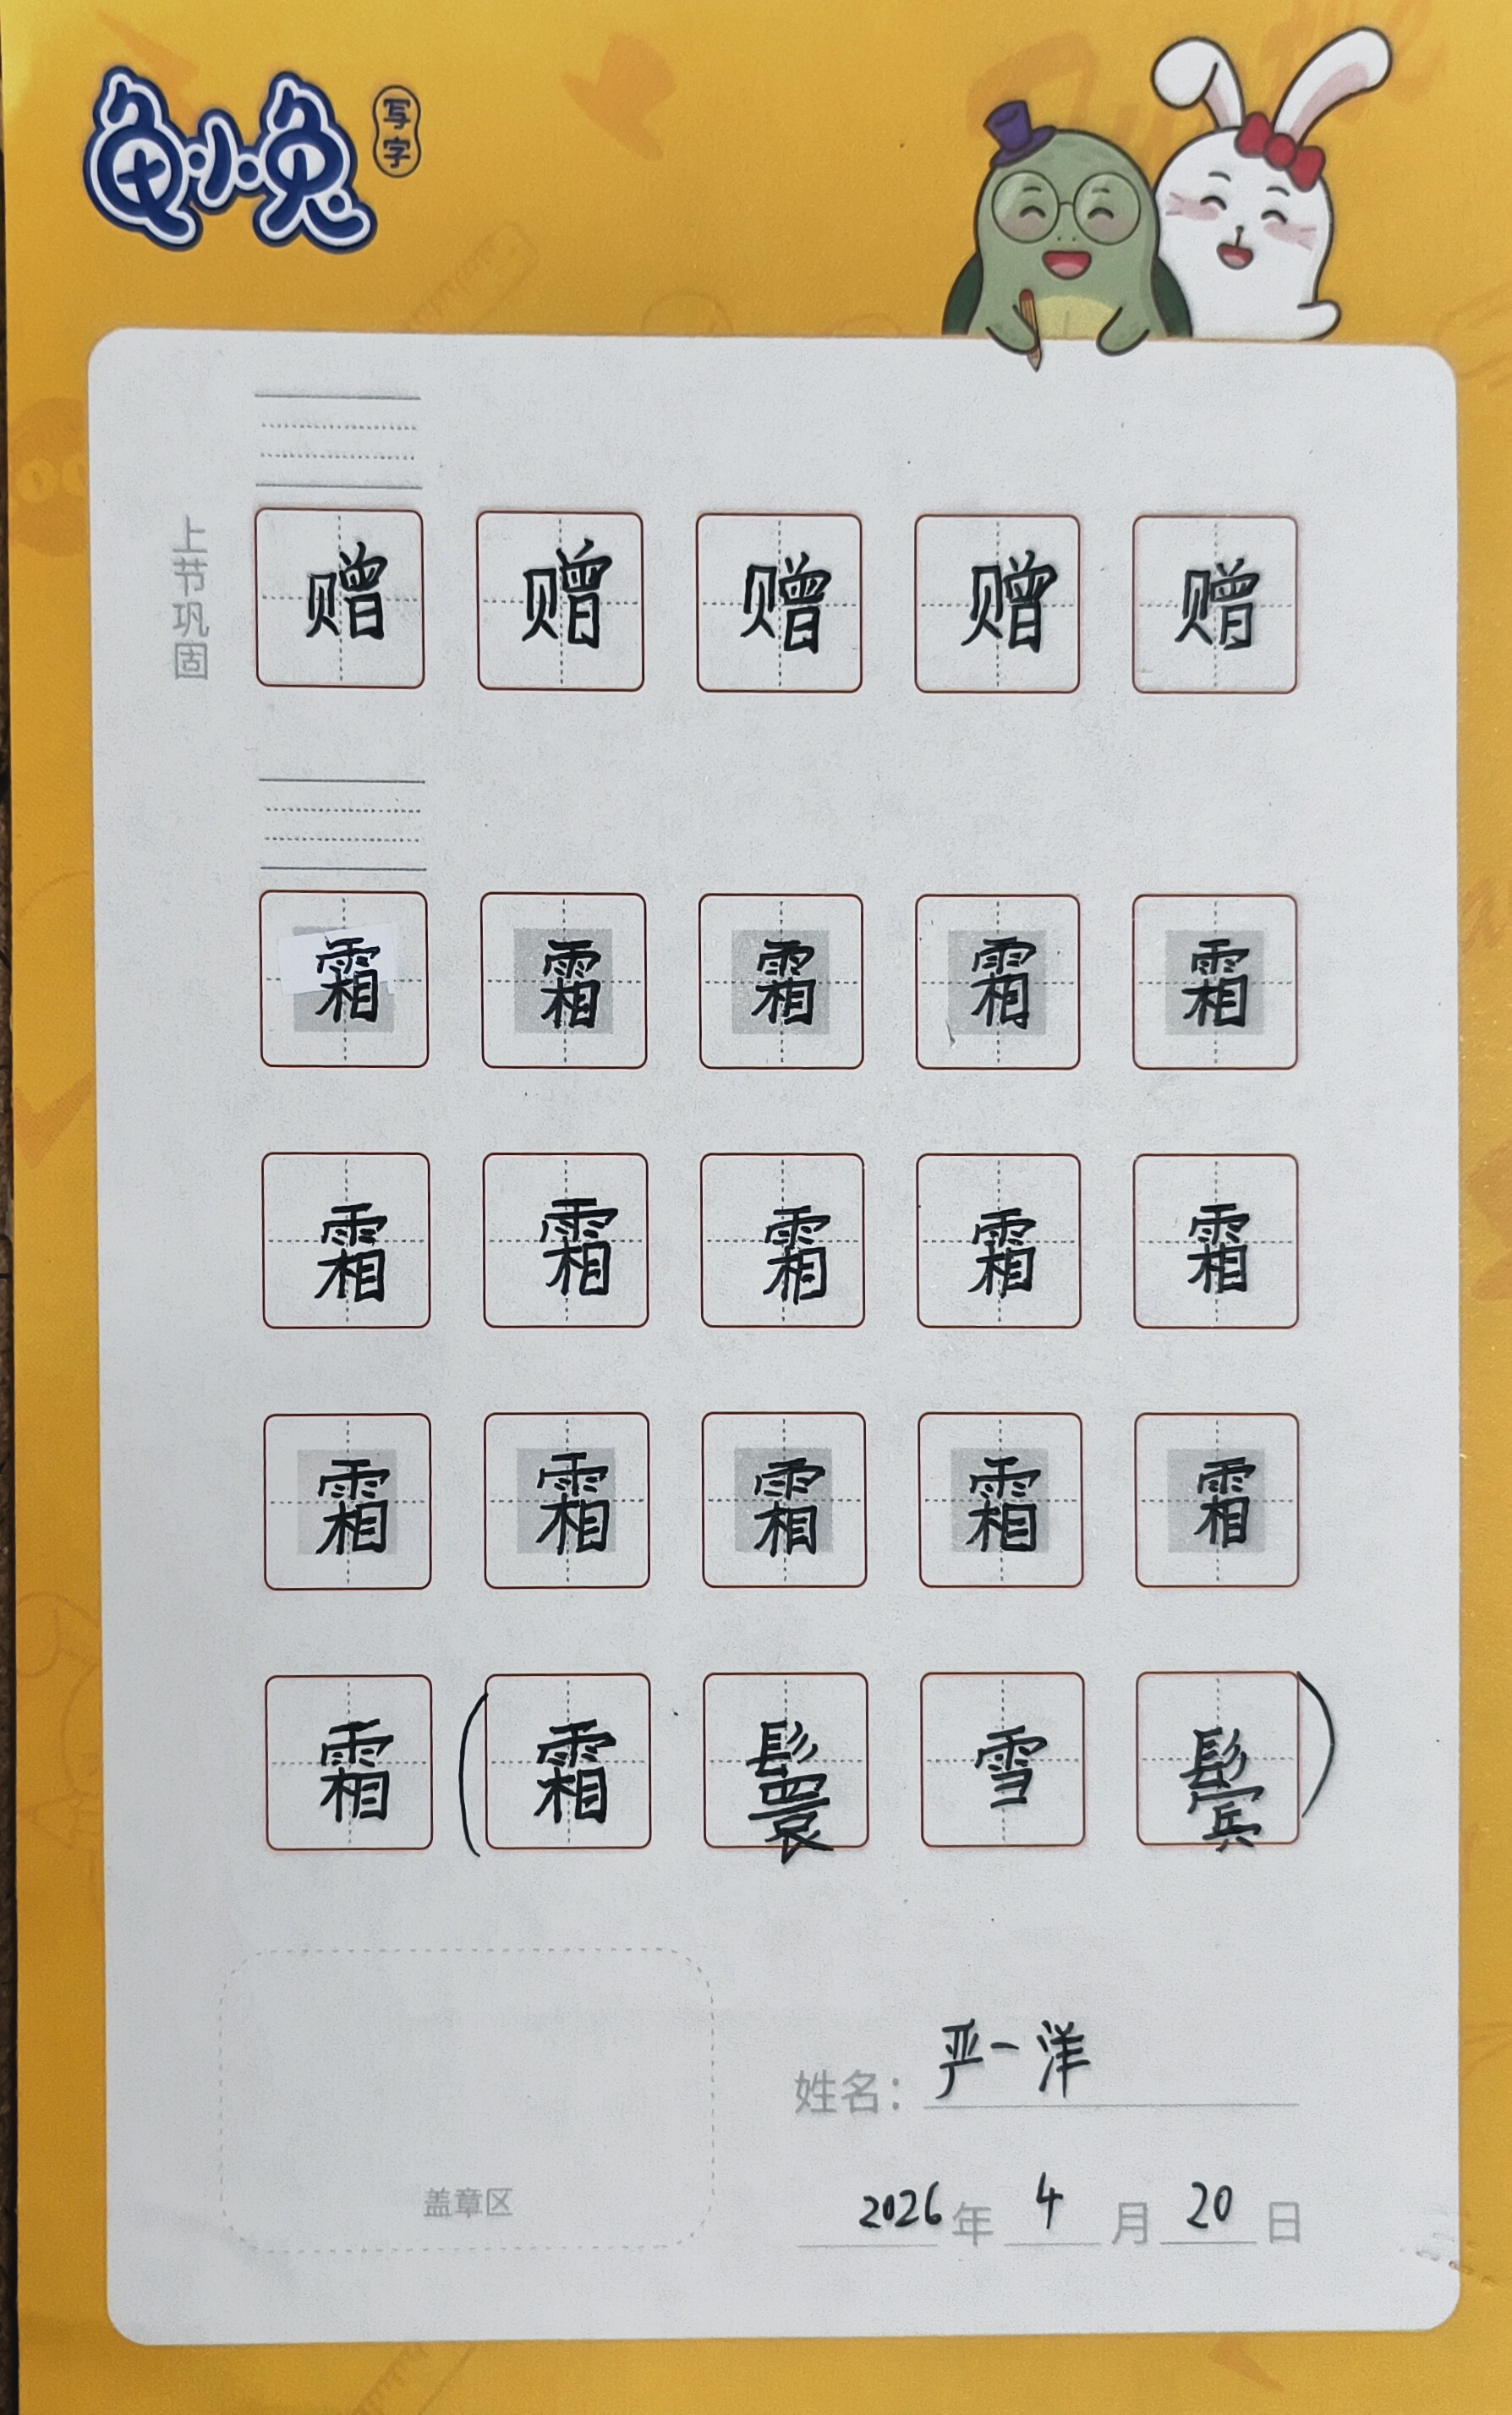 龟小兔
写字
上节巩固
赠 赠 赠 赠 赠
霜 霜 霜 霜 霜
霜 霜 霜 霜 霜
霜 霜 霜 霜 霜
霜 (霜 鬟 雪 鬓)
姓名: 严一洋
2026年 4月 20日
盖章区